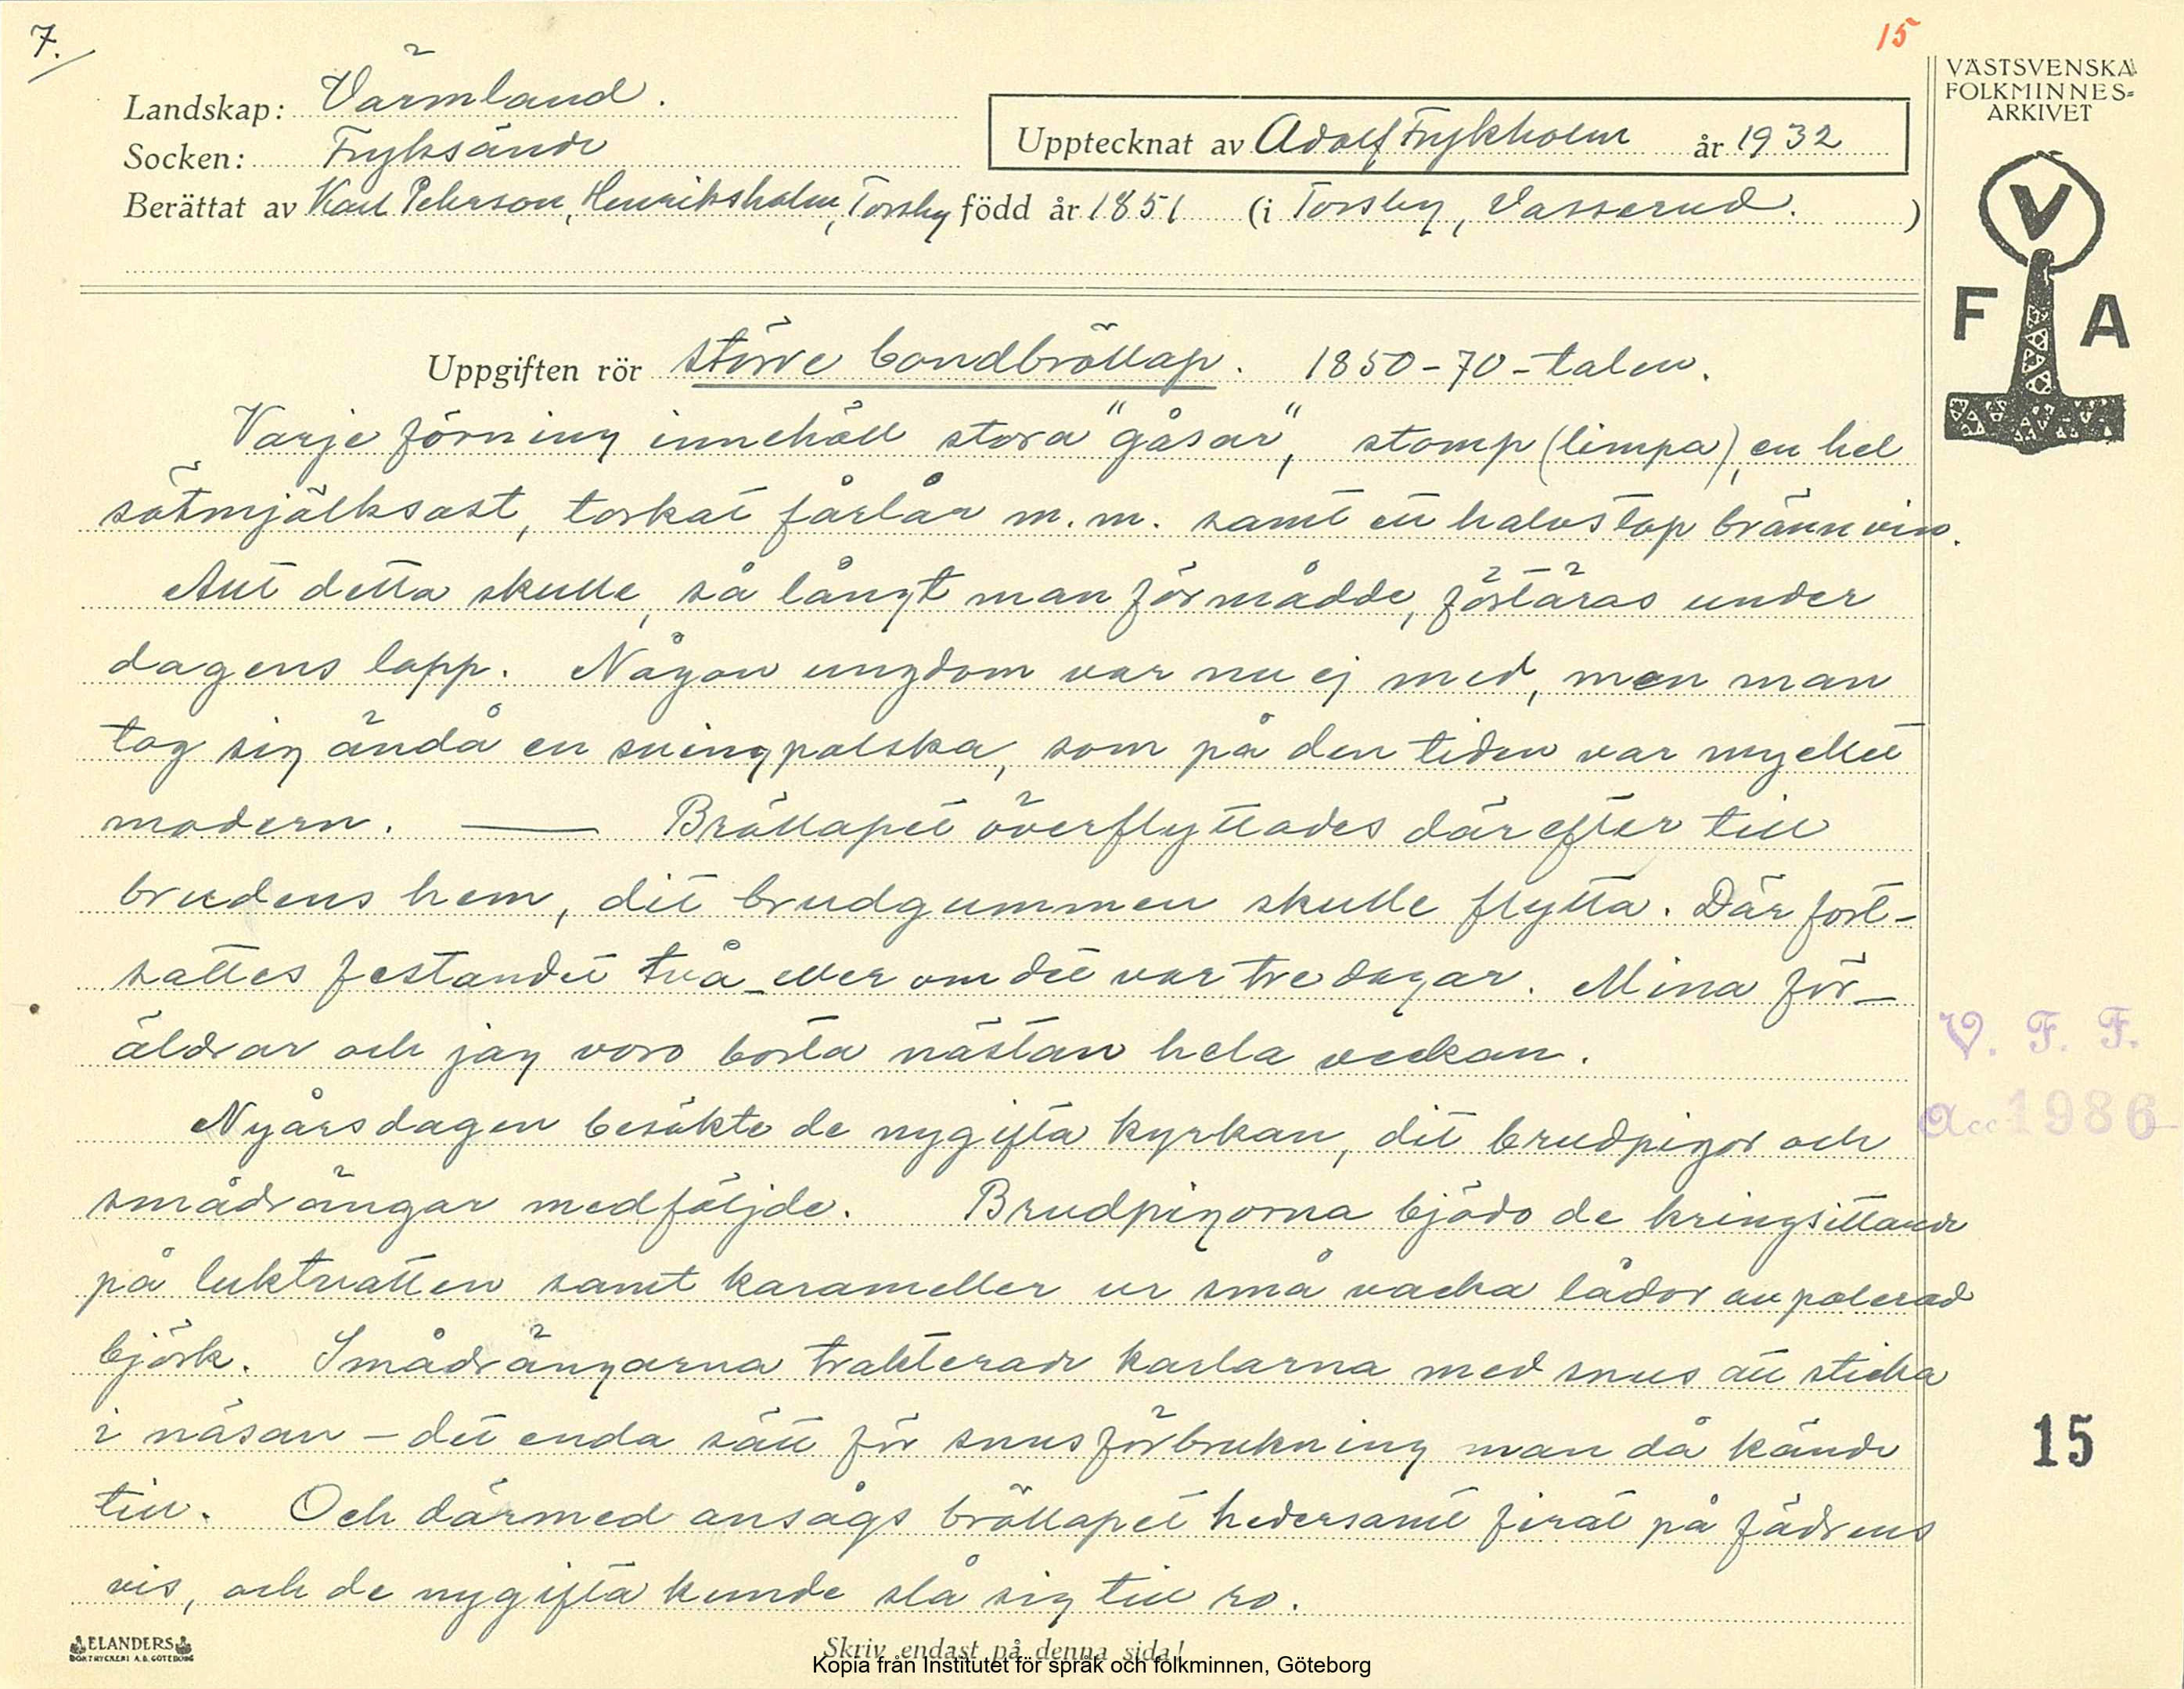 7.
15
VÄSTSVENSKA
FOLKMINNES-
ARKIVET
Landskap: Värmland.
Socken: Fryksände
Upptecknat av Adolf Frykholm år 1932
Berättat av Karl Peterson, Henriksholm, Torsby född år 1851 (i Torsby, Vasserud. )
V
F A
Uppgiften rör större bondbröllop. 1850-70-talen.
Varje förning innehöll stora "gåsar", stomp (limpa), en hel
sötmjölksost, torkat fårlår m.m. samt ett halvstop brännvin.
Allt detta skulle, så långt man förmådde, förtäras under
dagens lopp. Någon ungdom var nu ej med, men man
tog sig ändå en svingpolska, som på den tiden var mycket
modern. — Bröllopet överflyttades därefter till
brudens hem, dit brudgummen skulle flytta. Där fort-
sattes festandet två eller om det var tre dagar. Mina för-
äldrar och jag voro borta nästan hela veckan.
Nyårsdagen besökte de nygifta kyrkan, dit brudpigor och
smådrängar medföljde. Brudpigorna bjödo de kringsittande
på luktvatten samt karameller ur små vackra lådor av polerad
björk. Smådrängarna trakterade karlarna med snus att sticka
i näsan – det enda sätt för snusförbrukning man då kände
till. Och därmed ansågs bröllopet hedersamt firat på fädrens
vis, och de nygifta kunde slå sig till ro.
V. F. F.
Acc 1986
15
ELANDERS
BOKTRYCKERI A.B. GÖTEBORG
Skriv endast på denna sida!
Kopia från Institutet för språk och folkminnen, Göteborg